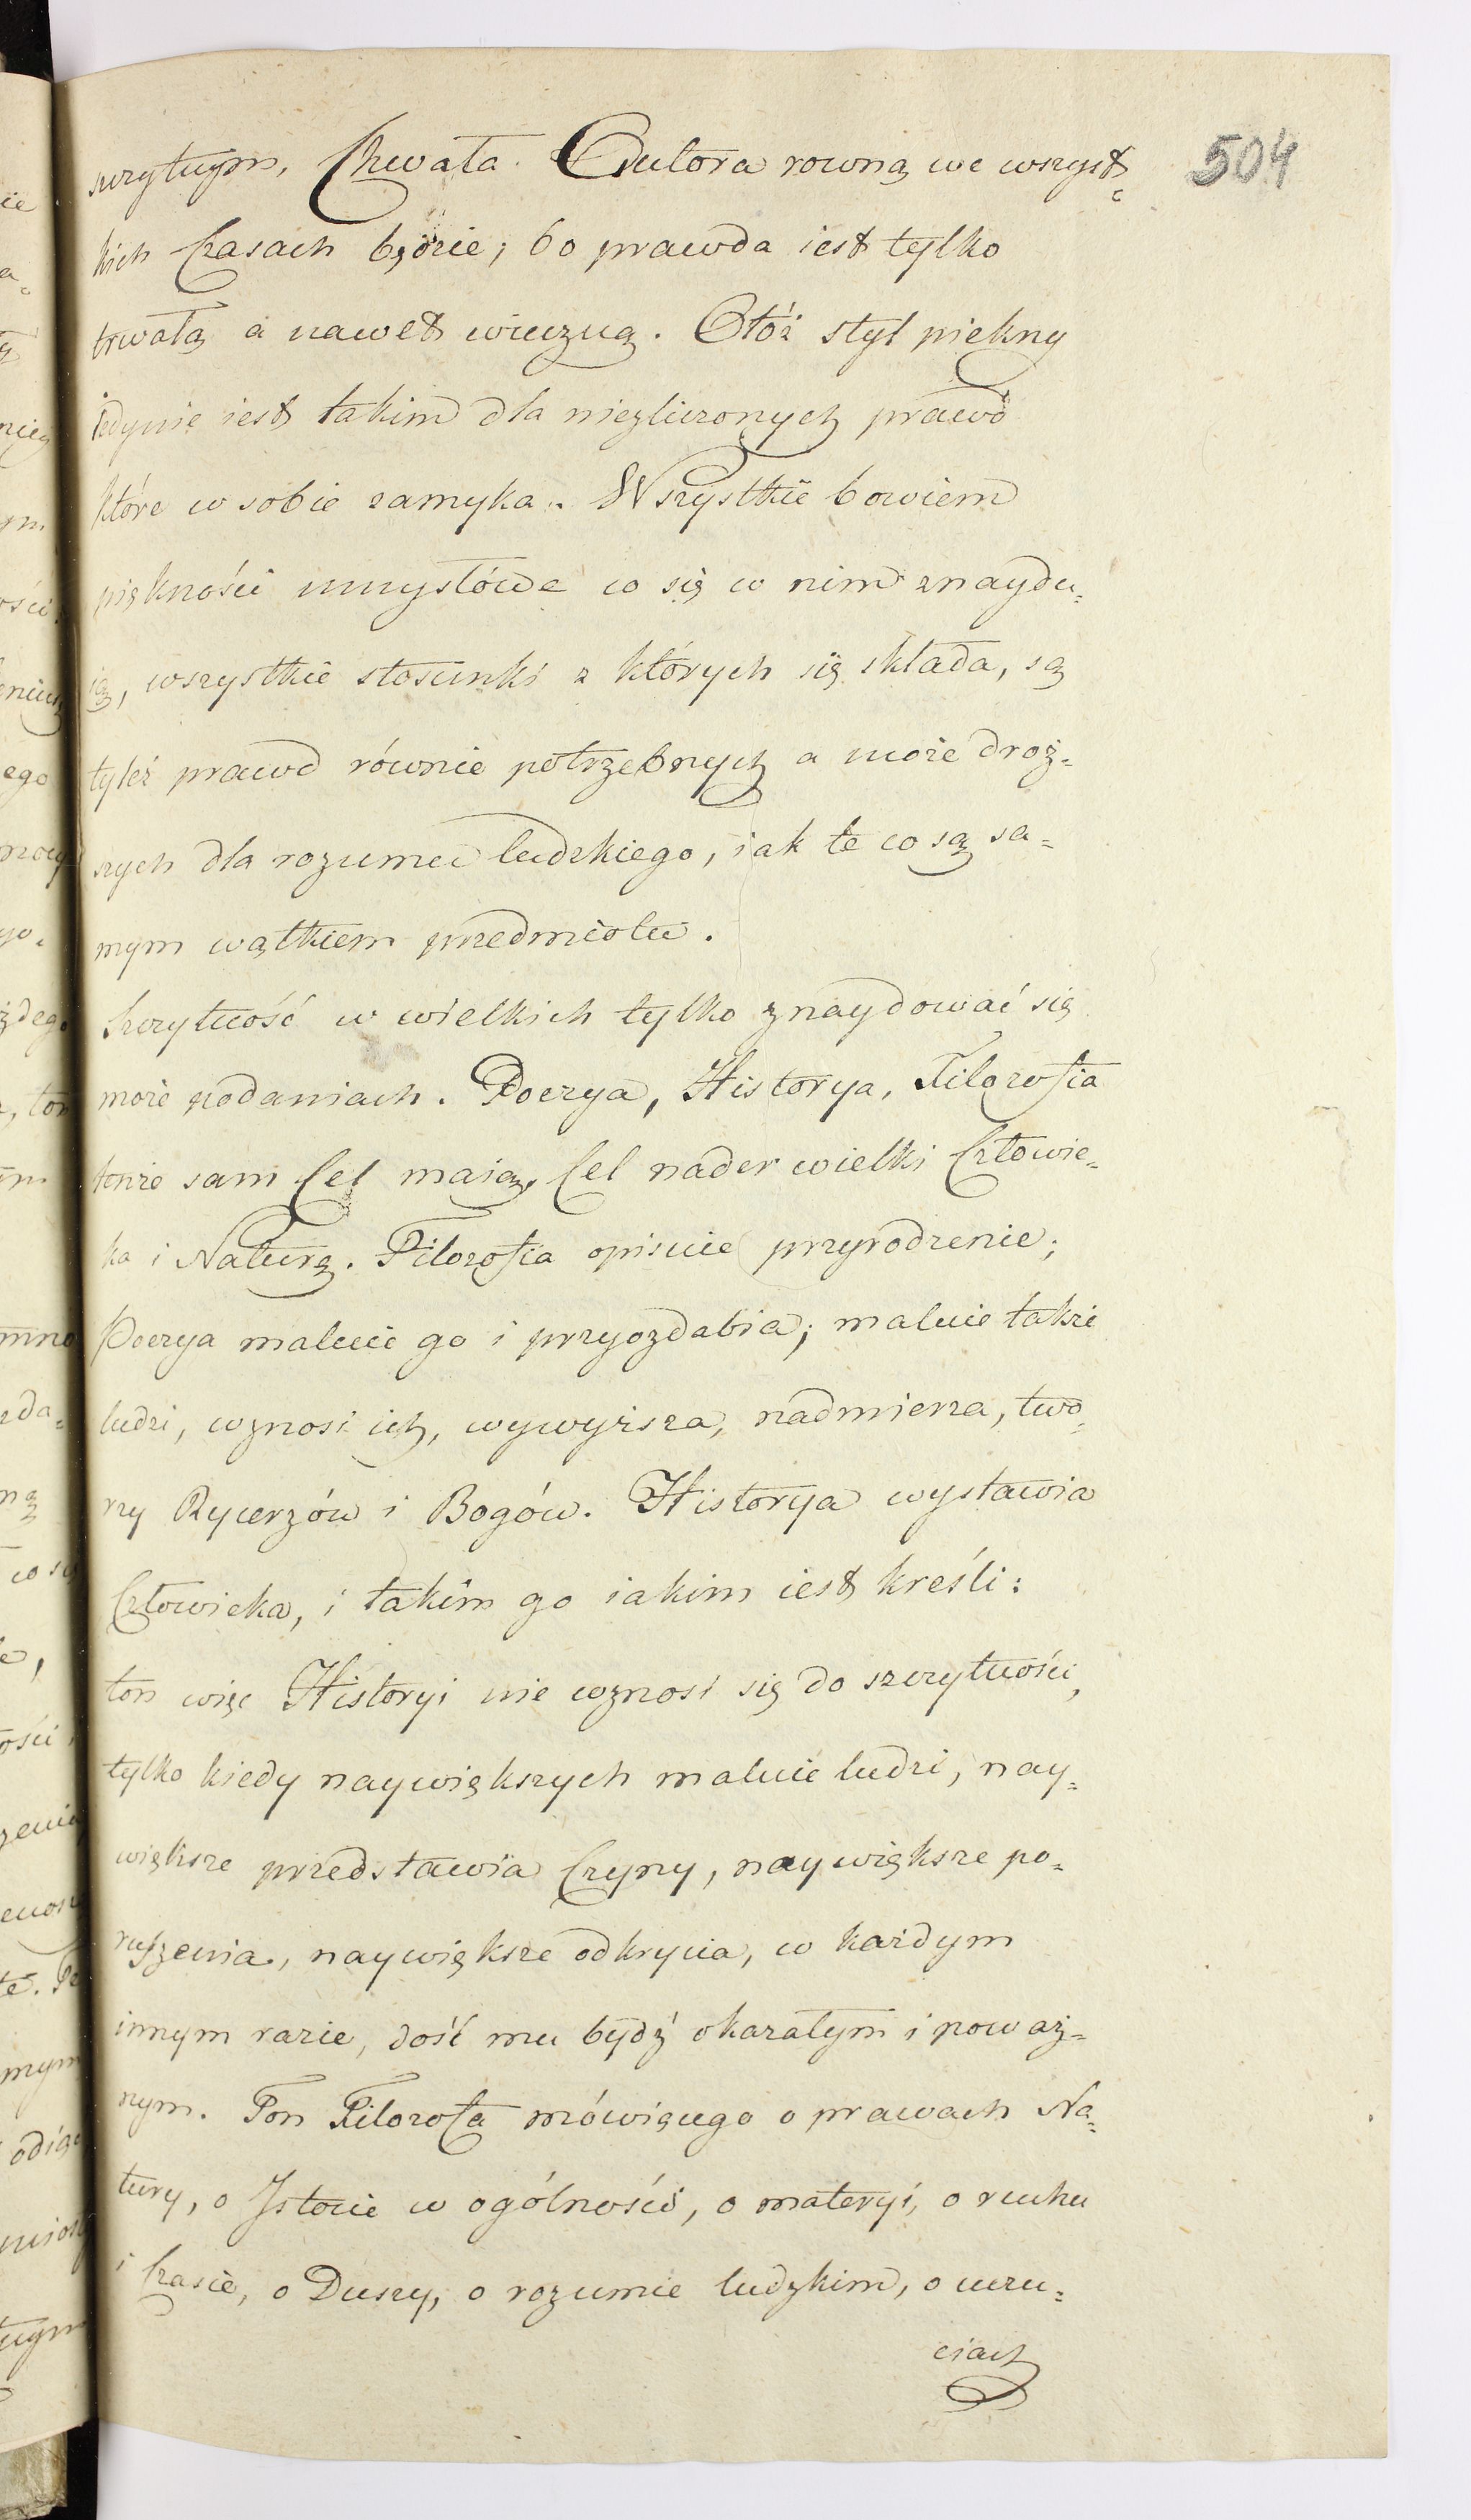 504
szczytnym, Chwała Autora rowną we wszyst=
kich Czasach będzie; bo prawda iest tylko
trwałą a nawet wieczną. Otóż styl piękny
iedynie iest takim dla niezliczonych prawd
które w sobie zamyka. Wszystkie bowiem
piękności umysłowe co się w nim znaydu=
ią, wszystkie stosunki z których się składa, są
tyleż prawd równie potrzebnych a może droż=
szych dla rozumu ludzkiego, iak te co są sa=
mym wątkiem przedmiotu.
Szczytność w wielkich tylko znaydować się
może podaniach. Poezya, Historya, Filozofia
tenże sam Cel maią, Cel nader wielki Człowie=
ka i Naturę. Filozofia opisuie przyrodzenie;
Poezya maluie go i przyozdabia; maluie także
ludzi, wznosi ich, wywyższa, nadmierza, two=
rzy Rycerzów i Bogów. Historya wystawia
Człowieka, i takim go iakim iest kreśli:
ton więc Historyi nie wznosi się do szczytności,
tylko kiedy naywiększych maluie ludzi, nay=
większe przedstawia Czyny, naywiększe po=
ruszenia, naywiększe odkrycia, w każdym
innym razie, dość mu bydź okazałym i poważ=
nym. Ton Filozofa mówiącego o prawach Na=
tury, o Istocie w ogólności, o materyi, o ruchu
i Czasie, o Duszy, o rozumie ludzkim, o uczu=
ciach